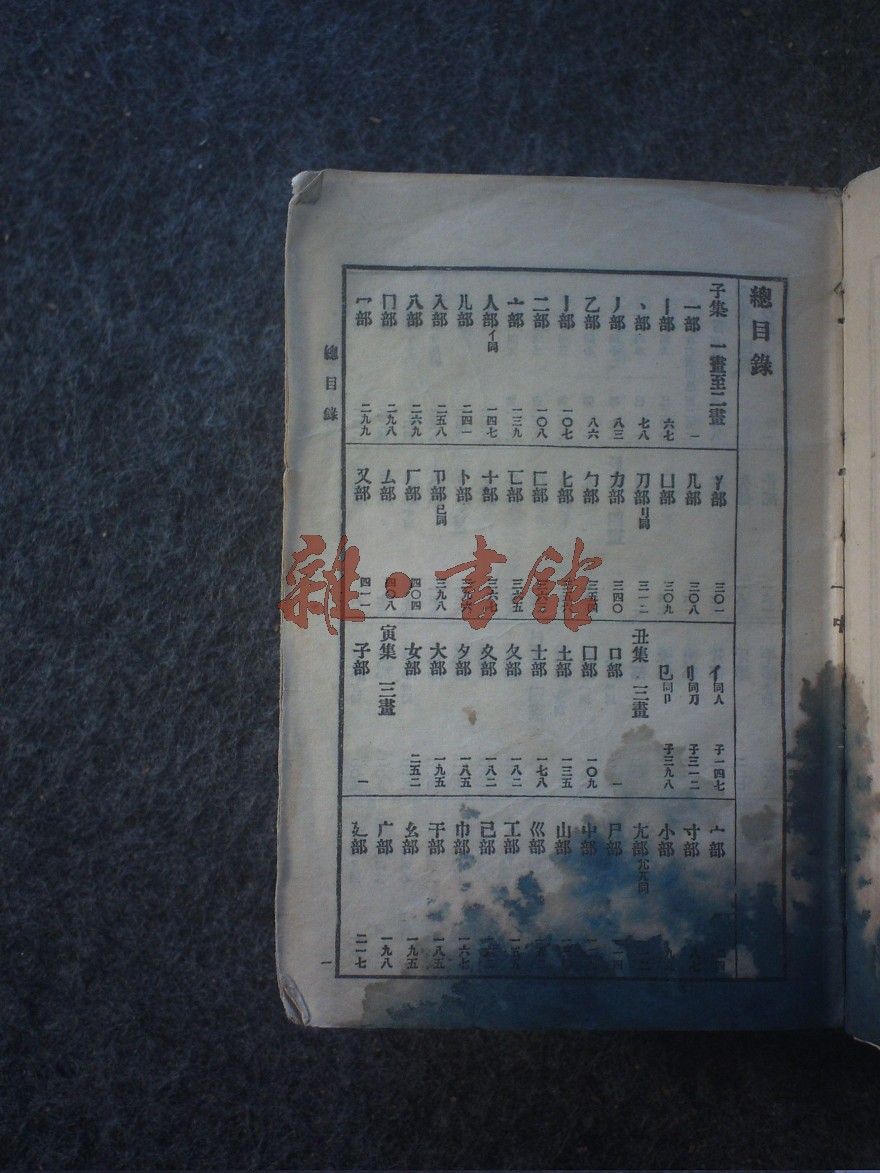 總目錄
子集 一畫至二畫
一部 一
丨部 六七
丶部 七八
丿部 八三
乙部 八六
亅部 一〇七
二部 一〇八
亠部 一三九
人部亻同 一四七
儿部 二四一
入部 二五八
八部 二六九
冂部 二九八
冖部 二九九
冫部 三〇一
几部 三〇八
凵部 三〇九
刀部刂同 三一二
力部 三四〇
勹部
匕部
匚部
匸部 三六五
十部
卜部
卩部㔾同 三九八
厂部 四〇四
厶部 四〇八
又部 四一一
亻同人 子一四七
刂同刀 子三一二
㔾同卩 子三九八
丑集 三畫
口部 一
囗部 一〇九
土部 一三五
士部 一七八
夂部 一八二
夊部 一八二
夕部 一八五
大部 一九五
女部 二五二
寅集 三畫
子部 一
宀部
寸部
小部
尢部尣兀同
尸部
屮部
山部
巛部
工部
己部
巾部 一六七
干部 一八五
幺部 一九五
广部 一九八
廴部 二一七
總目錄
一
雜·書館